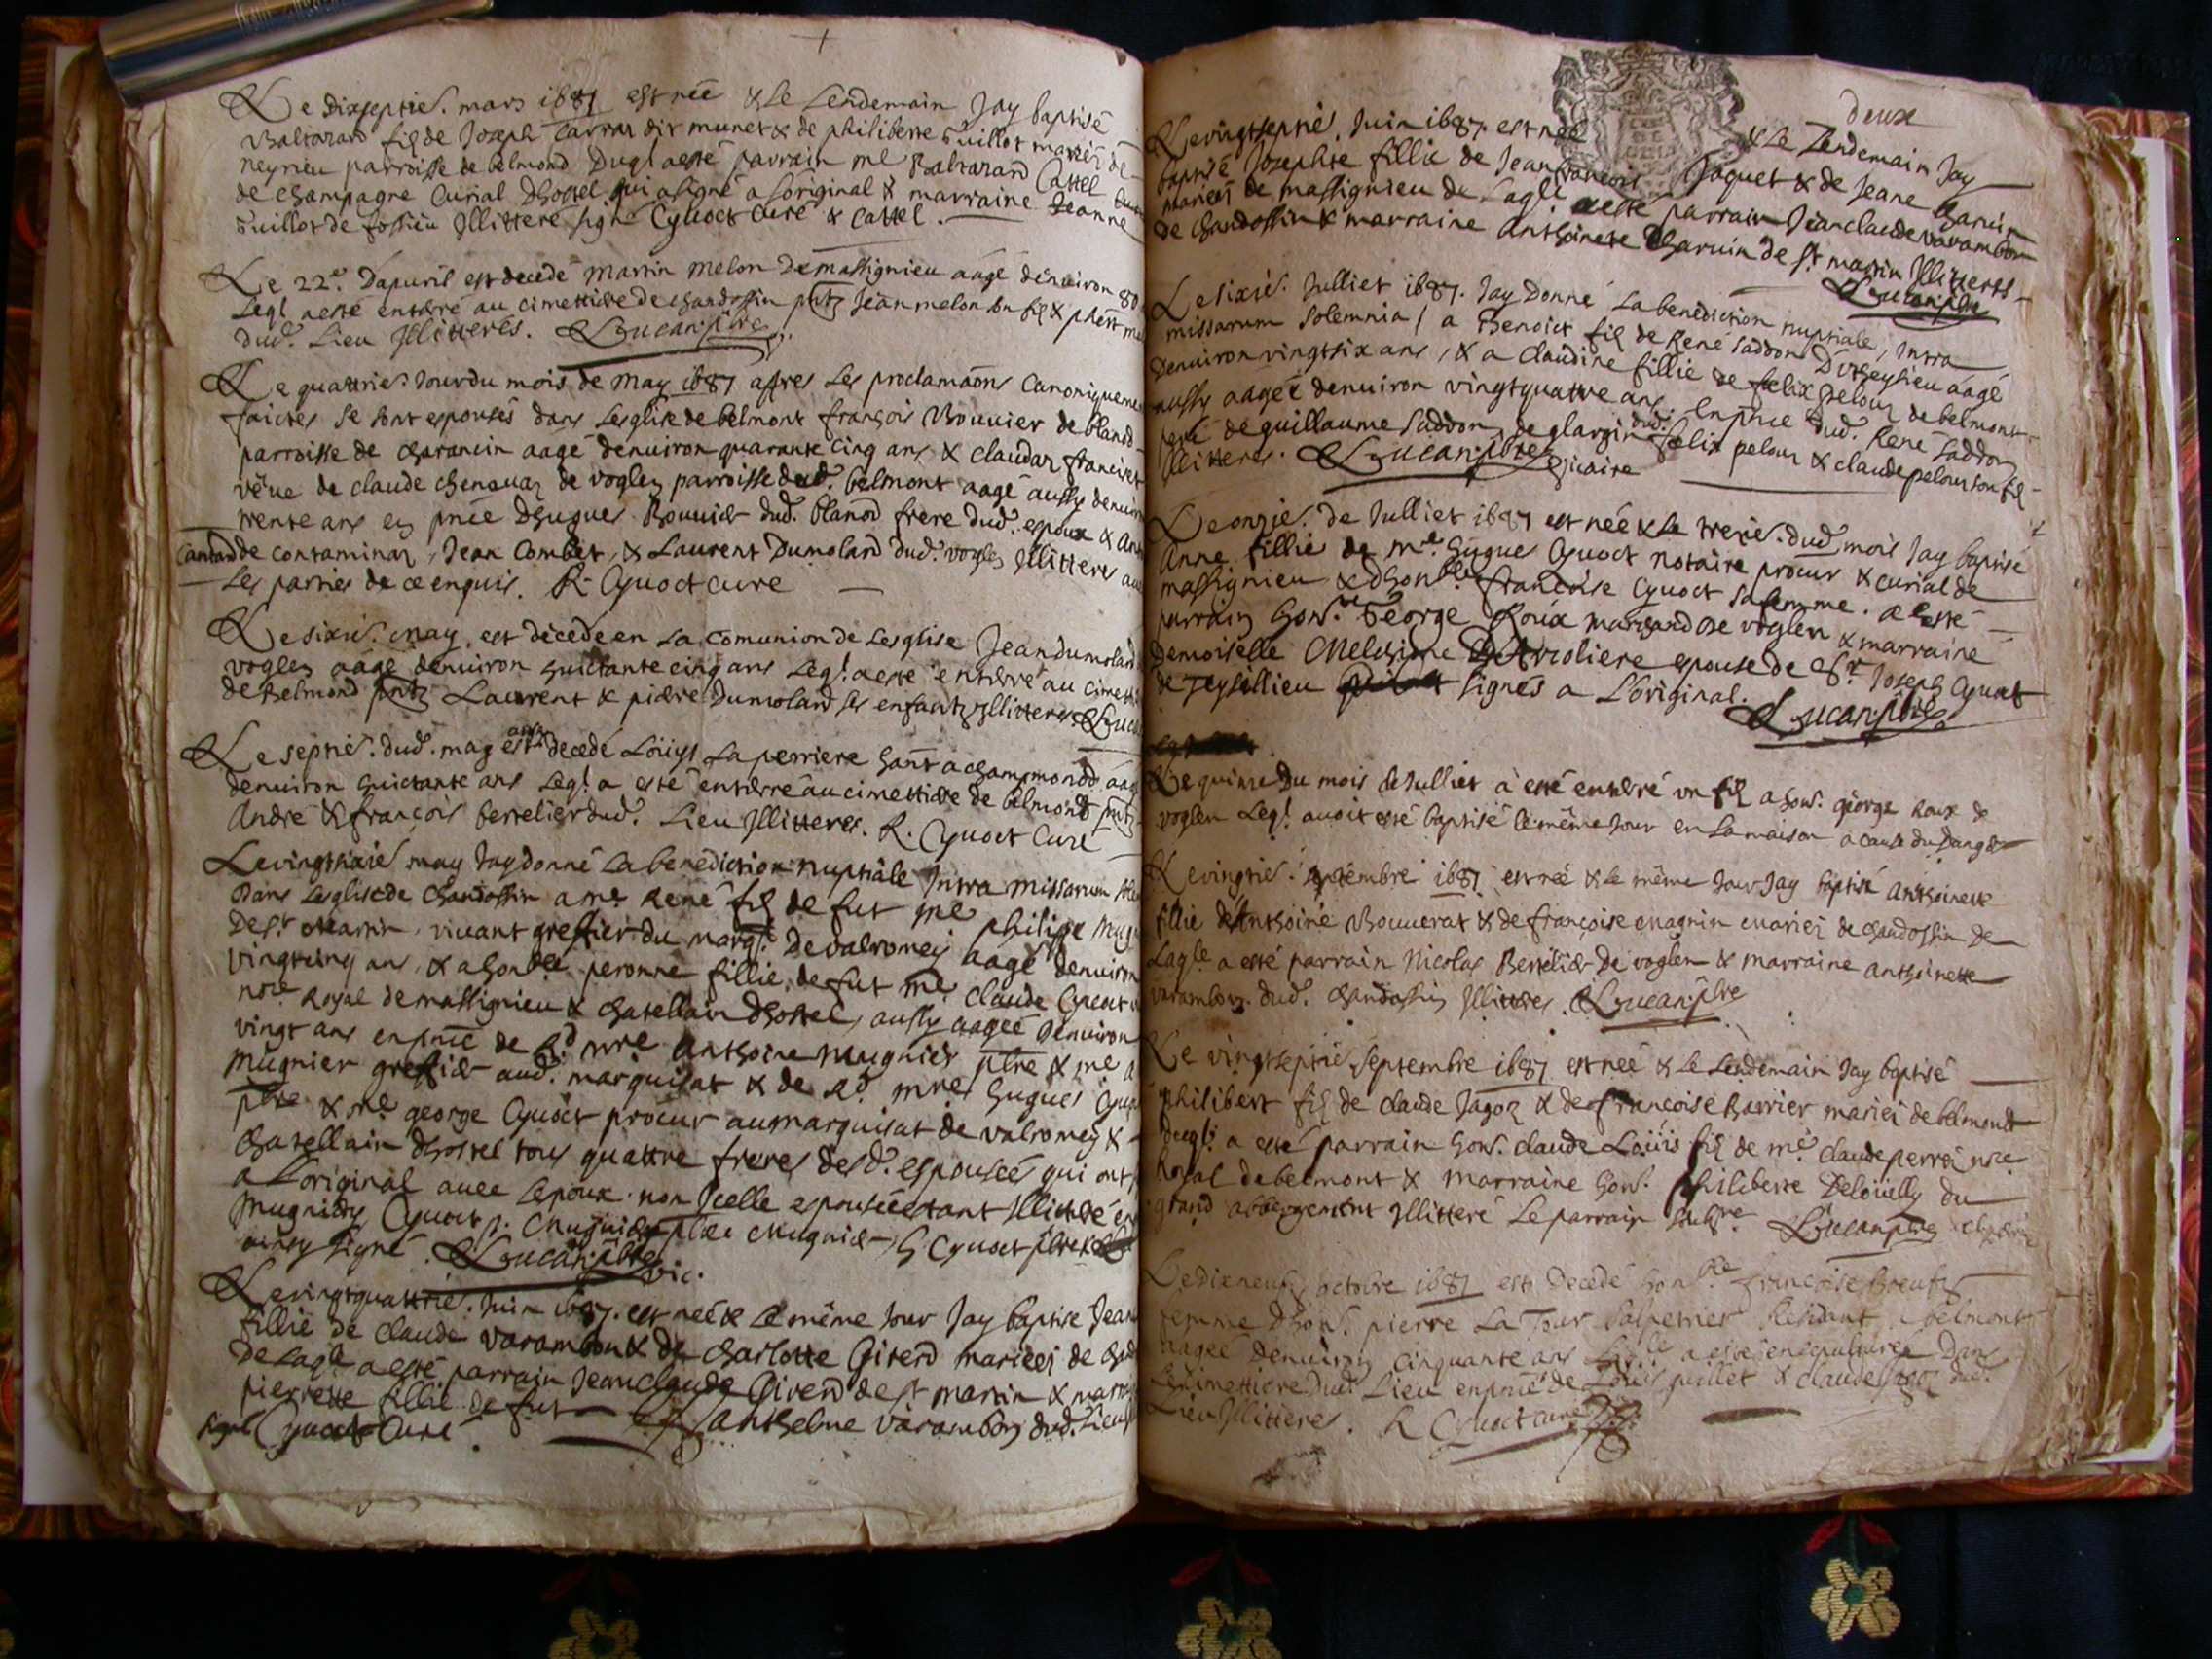 Le dixseptie. mars 1687 est née & le lendemain Jay baptisé
Baltazard fils de Joseph Carraz dit munet & de philiberte Guillot mariés de
neyrieu parroisse de belmond Duql aesté parrain me Baltazard Cattel
de champagne Curial Dhostel qui a signé a loriginal & marraine Jeanne
Guillot de fossieu Illittere signé Cyuoct curé & Cattel.
Le 22e. Dapuril est decedé martin melon De massignieu aagé denuiron 80
Leql aesté enterré au cimettiere de chandossin pnts Jean melon son fils &
dud. Lieu Illitterés. Lucan pbre
Le quattrie. Jour du mois de may 1687 apres Les proclamaons Canoniqueme
faictes se sont espousés dans Lesglise de belmont françois Bouuier de blanod
parroisse de charancin aagé denuiron quarante cinq ans & claudaz
vêue de claude chenauaz de voglen parroisse dud. belmont aagé aussy denuiron
trente ans en pnce Dhugues Bouuier dud. blanod frere dud. espoux &
de contaminaz, Jean Combet, & Laurent Dumolard dud. voglen Illitteres
Les parties de ce enquis. R Cyuoct cure
Le sixie. may. est decede en La comunion de Lesglise Jean dumolard
voglen aagé denuiron huictante cinq ans Leql aesté enterré au cimetti
de Belmond pnts Laurent & pierre Dumolard ses enfants Illitteres
Le septie. dud. may est aussy decedé Loüys La perriere hant a champmondd aagé
denuiron huictante ans Leql a esté enterré au cimettiere de belmond pnts
André & françois bertelier dud. Lieu Illitteres. R. Cyuoct Curé
Le vingtsixie may Jay donné La benediction nuptiale Intra missarum
Dans Lesglise de Chandossin a me René fils de fut me philippe
De St martin, viuant greffier du marqt. De valromey aagé denuiron
vingtcinq ans, & a honble peronne fillie de fut me claude Cyuoct
nore Royal de massignieu & chatellain dhostel, aussy aagée denuiron
vingt ans en pnce de Rd mre anthoine mugnier pbre & me
mugnier greffier aud. marquisat & de Rd mre hugues
pbre & me george Cyuoct procur au marquisat de valromey &
chatellain dhostel tous quattre freres desd. espousés qui ont
a L'original auec lepoux non Icelle espousée estant Illitteré
mugnier, Cyuoct p. Mugnier pbre Mugnier, h Cyuoct pbre
ainsy signé. Lucan pbre vic.
Le vingtquattrie. Juin 1687. est née & Le même Jour Jay baptisé
fillie de claude varambon & de charlotte Girerd mariés de
De Laqle aesté parrain Jean claude Girerd de st martin &
pierrette fillie de fut anthelme varambon dud. Lieu
Cyuoct Curé
deux
Le vingtseptie. Juin 1687. est née & Le Lendemain Jay
baptisé Josephte fillie de Jean françois Jaquet & de Jeane charuin
mariés de massignieu de Laqle aesté parrain Jean claude varambon
de chandossin & marraine anthoinete charuin de st martin Illitterés
Lucan pbre
Le sixie. Julliet 1687. Jay Donné La benediction nuptiale, Intra
missarum Solemnia, a Benoict fils de René Saddon aagé
Denuiron vingtsix ans, & a claudine fillie de felix pelouz de belmont
aussy aagée denuiron vingtquattre ans En pnce dud. René Saddon
de guillaume Saddon de glargin dud. felix pelouz & claude pelouz son fils
Illitteres. Lucan pbre vicaire
Le onzie. de Julliet 1687 est née & Le trezie. dud. mois Jay baptisé
Anne fillie de me. hugues Cyuoct notaire procur & curial de
massignieu & dhonble françoise Cyuoct sa femme. a esté
parrain hon. George Roux marchand de voglen & marraine
Demoiselle Melchione espouse de Sr Joseph Cyuoct
signés a L'original. Lucan pbre
Le quinze du mois de Julliet à esté enterré un fils a hon. george Roux de
voglen Leql auoit esté baptisé le même Jour en La maison a cause du danger
Le vingtie. septembre 1687 est née & Le même Jour Jay baptisé anthoinette
fillie d'Anthoine Bouuerat & de françoise magnin mariés de chandossin De
Laqle a esté parrain Nicolas Bertelier De voglen & marraine anthoinette
varambon dud. chandossin Illitteres. Lucan pbre
Le vingtseptie. septembre 1687 est née & Le Lendemain Jay baptisé
philibert fils de claude Jagoz & de françoise Barrier mariés de belmond
duql. a esté parrain hon. claude Loüis fils de me. claude perroz nore
Royal de belmont & marraine hon. philiberte Deloüelly du
grand abbergement Illitteré Le parrain soubre Lucan pbre
Le dixneuf octobre 1687 est Decedé hon.ble françoise
femme Dhon. pierre La Tour Salpetrier Residant a belmont
aagée Denuiron cinquante ans Laqlle a esté ensepulturée Dans
Le cimettiere dud. Lieu en pnce de Louis juillet & claude Jagoz dud.
Lieu Illitteres. R Cyuoct curé